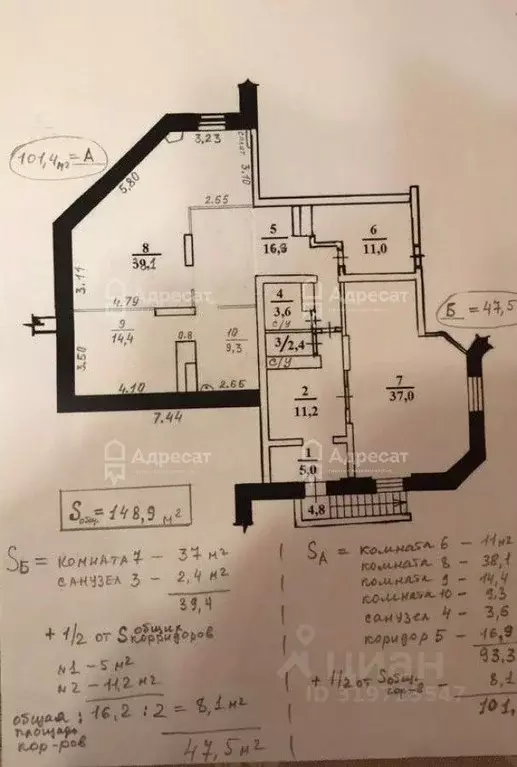 101,4 м2 = А
3,23
5.80
3.10
2.65
5
16,9
6
11,0
8
39,1
3.11
4
3,6
с/у
Б = 47,5
4.79
9
14,4
0.8
10
9,3
3/2,4
с/у
3.50
7
37,0
2
11,2
4.10
2.65
7.44
1
5,0
4,8
Адресат
Адресат
Адресат
Адресат
Адресат
Адресат
Sобщ. = 148,9 м2
SБ = комната 7 - 37 м2
санузел 3 - 2,4 м2
39,4
+ 1/2 от S общих корридоров
№1 - 5 м2
№2 - 11,2 м2
общая площадь кор-ров : 16,2 : 2 = 8,1 м2
47,5 м2
SА = комната 6 - 11 м2
комната 8 - 38,1
комната 9 - 14,4
комната 10 - 9,3
санузел 4 - 3,6
коридор 5 - 16,9
93,3
+ 1/2 от Sобщ. кор-в - 8,1
101,
циан